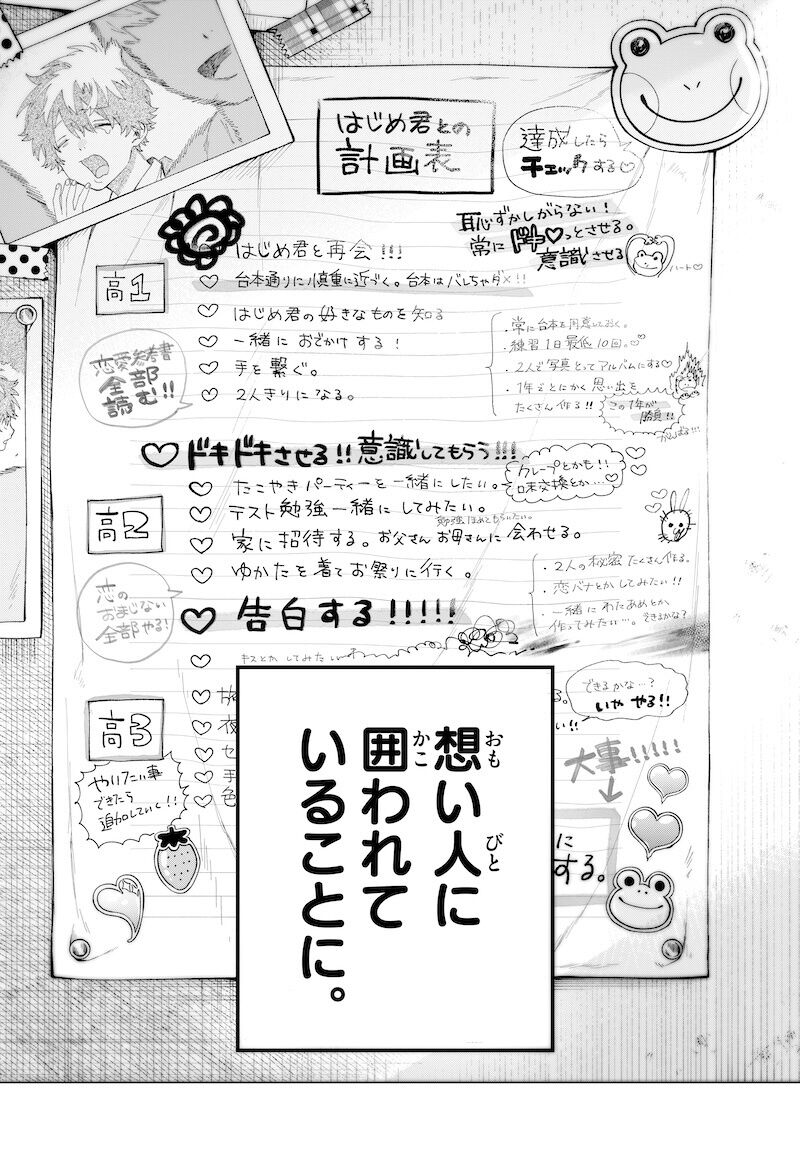 はじめ君との
計画表
達成したら
チェックする♡
恥ずかしがらない！
常にドキ♡っとさせる。
意識させる
ハート♡
高1
はじめ君と再会!!!
台本通りに慎重に近づく。台本はバレちゃダメ!!
はじめ君の好きなものを知る
一緒におでかけする！
手を繋ぐ。
2人きりになる。
・常に台本を用意しておく。
・練習1日最低10回。
・2人で写真とってアルバムにする♡
・1年でとにかく思い出を
たくさん作る!!
この1年が
勝負!!
がんばる!!
恋愛参考書
全部
読む!!
ドキドキさせる!!意識してもらう!!!
高2
たこやきパーティーを一緒にしたい。
クレープとかも!!
味交換とか…
テスト勉強一緒にしてみたい。
勉強ほめてもらいたい。
家に招待する。お父さんお母さんに会わせる。
ゆかたを着てお祭りに行く。
・2人の秘密たくさん作る。
・恋バナとかしてみたい!!
・一緒にわたあめとか
作ってみたい…。できるかな？
恋の
おまじない
全部やる！
告白する!!!!!
キスとかしてみたい
高3
できるかな…？
いややる!!
い!!
旅
夜
セ
手
色
やりたい事
できたら
追加していく!!
大事!!!!!
に
する。
想い人に
囲われて
いることに。